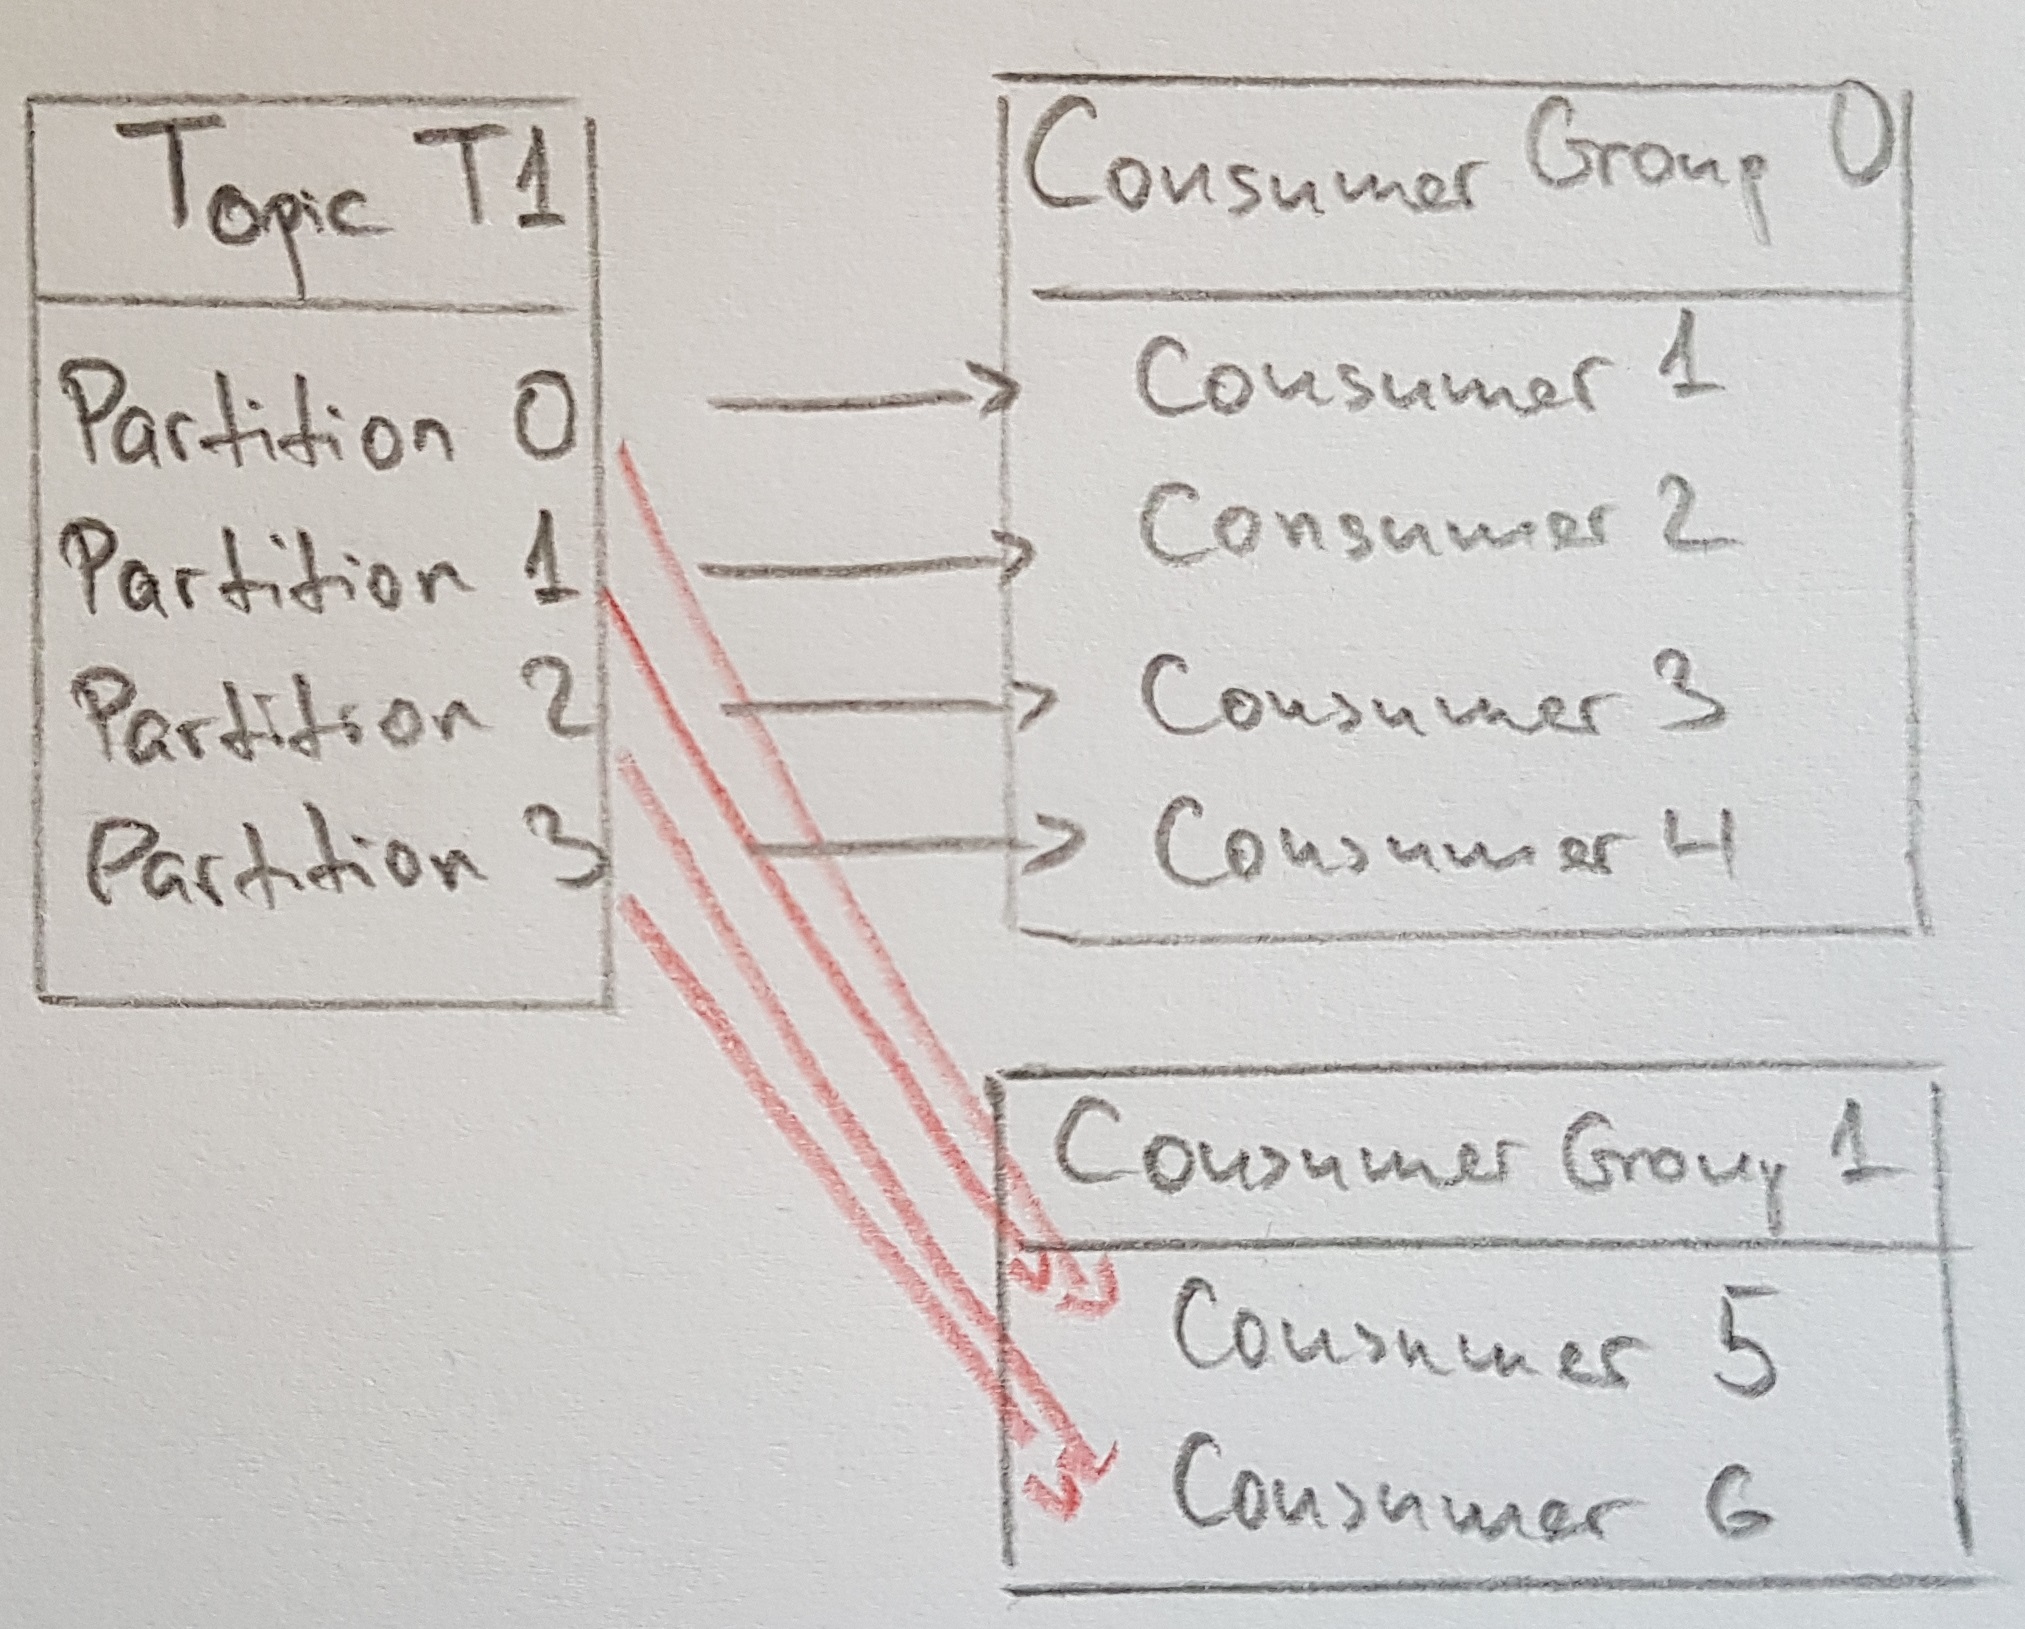 Topic T1
Partition 0
Partition 1
Partition 2
Partition 3
Consumer Group 0
Consumer 1
Consumer 2
Consumer 3
Consumer 4
Consumer Group 1
Consumer 5
Consumer 6